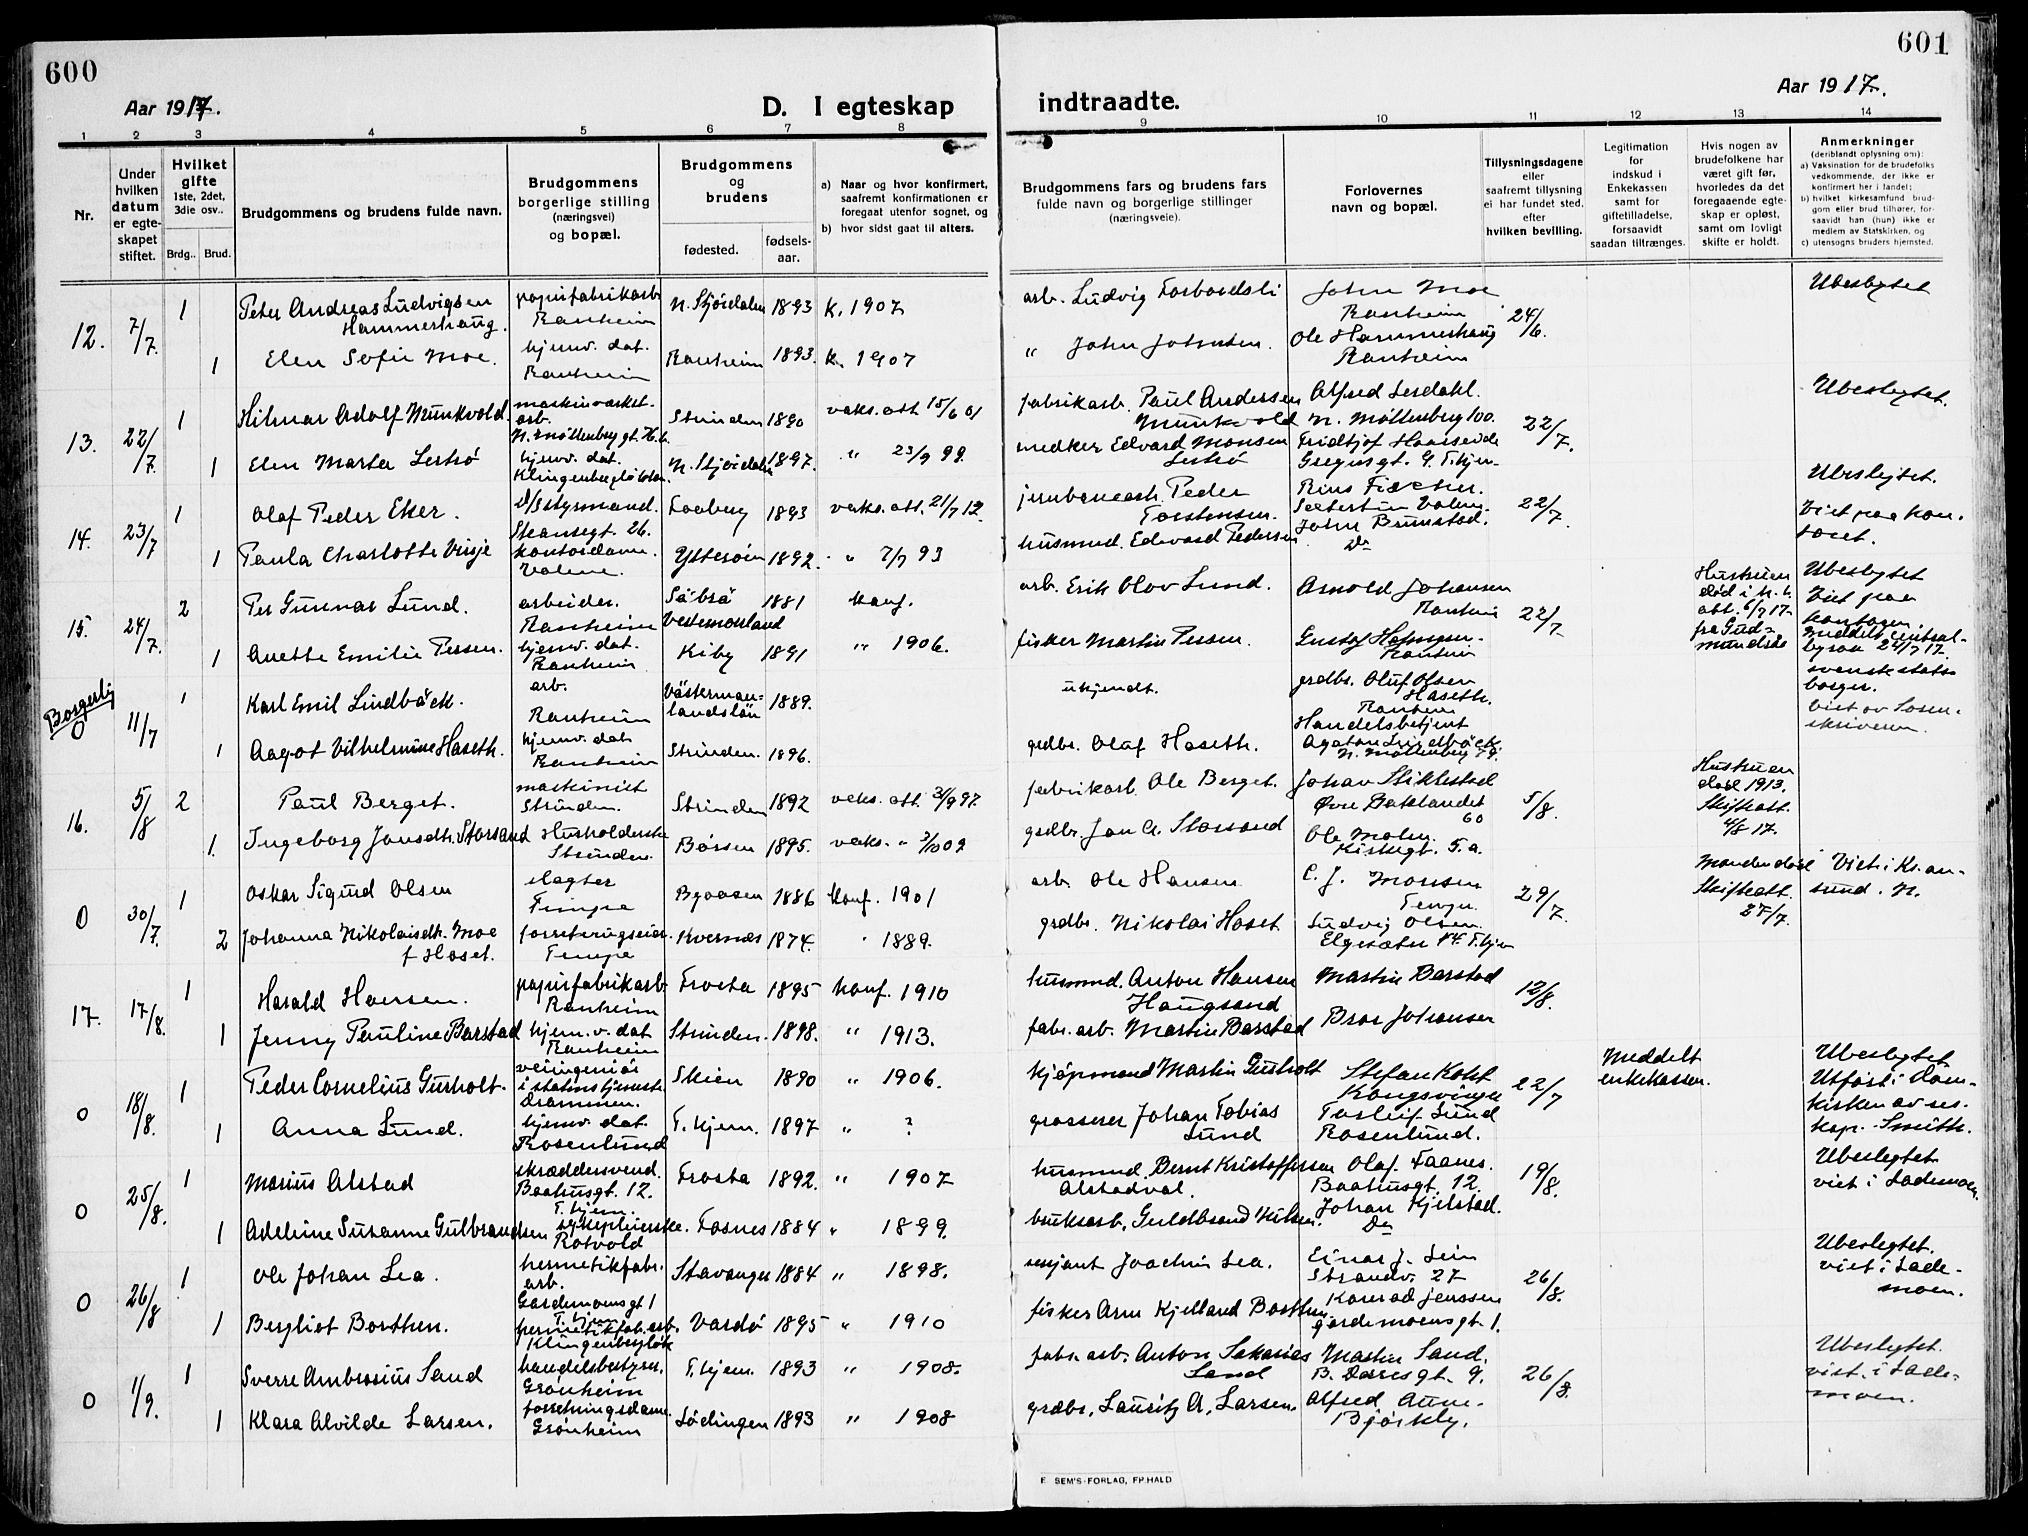 600
601
Aar 1917.
D. I egteskap
indtraadte.
Aar 1917.
1 2 3 4 5 6 7 8 9 10 11 12 13 14
Nr.
Under hvilken datum er egteskapet stiftet.
Hvilket gifte 1ste, 2det, 3die osv..
Brdg.. Brud.
Brudgommens og brudens fulde navn.
Brudgommens borgerlige stilling (næringsvei) og bopæl.
Brudgommens og brudens
fødested.
fødsels-aar.
a) Naar og hvor konfirmert, saafremt konfirmationen er foregaat utenfor sognet, og
b) hvor sidst gaat til alters.
Brudgommens fars og brudens fars fulde navn og borgerlige stillinger (næringsveie).
Forlovernes navn og bopæl.
Tillysningsdagene eller saafremt tillysning ei har fundet sted, efter hvilken bevilling.
Legitimation for indskud i Enkekassen samt for giftetilladelse, forsaavidt saadan tiltrænges.
Hvis nogen av brudefolkene har været gift før, hvorledes da det foregaaende egteskap er opløst, samt om lovligt skifte er holdt.
Anmerkninger (deriblandt oplysning om):
a) Vaksination for de brudefolks vedkommende, der ikke er konfirmert her i landet;
b) hvilket kirkesamfund brudgom eller brud tilhører, forsaavidt han (hun) ikke er medlem av Statskirken, og
c) utensogns bruders hjemsted.
12. 7/7. 1 Peter Andreas Ludvigsen Hammerhaug. papirfabrikarb. Ranheim N. Stjørdalen 1893 K. 1907 arb. Ludvig Forbordsli John Moe Ranheim 24/6. Ubeslegtet
1 Elen Sofie Moe. hjemv. dat. Ranheim Ranheim 1893. K. 1907 " John Johnsen. Ole Hammerhaug Ranheim
13. 22/7. 1 Hilmar Adolf Munkvold. maskinvasket. arb. N. Møllenberg gt. Strinden 1890 vaks. att. 15/6 01 fabrikarb. Paul Andersen Munkvold Alfred Lesdahl. N. Møllenberg 100. 22/7. Ubeslegtet.
1 Elen Marta hjemv. dat. N. Stjørdalen 1897. " 23/9 99. Edvard Monsen Fridtjof
14. 23/7 1 Olaf Peder Eker. D/S styrmand. Skansegt. 26. Faaberg 1893 vaks. att. 21/7 12. jernbanearb. Peder Torstensen. 22/7. Ubeslegtet. Viet paa kontoret.
1 Paula Charlotte kontordame. Ytterøen 1892. " 7/7 93 husmnd. Edvard Pedersen John Brunstad. Do
15. 24/7. 2 Per Gunnar Lund. arbeider. Ranheim Säbrå Vesternorland 1881 konf. arb. Erik Olov Lund. Arnold Johansen Ranheim 22/7. Hustruen død Ubeslegtet Viet paa kontoret.
1 Anette Emilie Tessen. hjemv. dat. Ranheim Kiby 1891 " 1906. fisker Martin Tessen. Gustaf Ranheim svensk statsborger.
Borgerlig 0 11/7 1 Karl Emil Lindbäck. arb. Ranheim Västermanlandslän 1889. ukjendt. grdbr. Oluf Olsen Haseth. Ranheim Viet av Sorenskriveren.
1 Aagot Vilhelmine Haseth. hjemv. dat. Ranheim Strinden. 1896. grdbr. Olaf Haseth. Handelsbetjent Agaton Lindbäck. N. Møllenberg
16. 5/8 2 Paul Berget. maskinist Strinden. Strinden 1892 vaks. att. fabrikarb. Ole Berget. Johan Stiklestad Øvre Bakklandet 60 5/8. Hustruen død 1913. Skifteatt. 4/8 17.
1. Ingeborg Jonsdtr. Storsand Husholderske Strinden. Børsen 1895. vaks. " 09 grdbr. Jon A. Storsand Ole Malm. Kirkegt. 5. a.
0 30/7. 1 Oskar Sigurd Olsen slagter Tempe Byaasen 1886 konf. 1901 arb. Ole Hansen C. J. Monsen Tempe. 29/7. Manden død Skifteatt. 27/7. Viet i Kr.ansund. N.
2 Johanna Nikolaisdtr. Moe f. Haset. Tempe Kvernæs 1874. " 1889. grdbr. Nikolai Haset Ludvig Olsen. Elgesæter T.hjem
17. 17/8. 1 Harald Hansen. papirfabrikarb. Ranheim Frosta 1895 konf. 1910 husmnd. Anton Hansen Haugsand Martin Barstad 12/8.
1 Jenny Pauline Barstad hjem. v. dat Ranheim Strinden. 1898. " 1913. fabr. arb. Martin Barstad Bror Johansen
0 18/8. 1 Peder Cornelius Gusholt. veiingeniør i statens tjeneste Drammen. Skien 1890 " 1906. kjøpmand Martin Gusholt Stefan Kongsvinger 22/7 Meddelt enkekassen. Ubeslegtet Utført i Domkirken av res. kap. Smith.
1 Anna Lund. hjemv. dat. Rosenlund T.hjem. 1897 " ? grosserer Johan Tobias Lund Torleif Lund Rosenlund.
0 25/8. 1 Marius Alstad skræddersvend. Baahusgt. 12. T.hjem. Frosta 1892. " 1907 husmnd. Bernt Kristoffersen Alstadval. Olaf Faanes. Baahusgt. 12. 19/8. Ubeslegtet viet i Lademoen.
1 Adeleine Susanne Gulbrandsen syskepleierske. Rotvold Fosnes 1884 " 1899. bruksarb. Guldbrand Nilsen. Johan Kjelstad. Do
0 26/8 1 Ole Johan Lea. hermetikfabr. arb. Gardemoensgt 1 T.hjem Stavanger 1884 " 1898. sersjant Joachim Lea. Einar J. Lein Strandv. 27 26/8. Ubeslegtet. viet i Lademoen.
1 Bergliot Borthen. hermetikfab. arb. Vardø 1895 " 1910 fisker Arnt Kjelland Borthen Konrad Jenssen gardemoensgt 1.
0 1/9. 1 Sverre Ambrosius Sand handelsbestyrer. Grønheim T.hjem. 1893 " 1908. fabr. arb. Anton Sakarias Sand Martin Sand. 26/8. Ubeslegtet. viet i Lademoen.
1 Klara Alvilde Larsen. forretningsdame. Grønheim Lødingen 1893 " 1908 grdbr. Lauritz A. Larsen. Alfred Aune. Bjørkly.
E. SEM'S FORLAG, FR.HALD